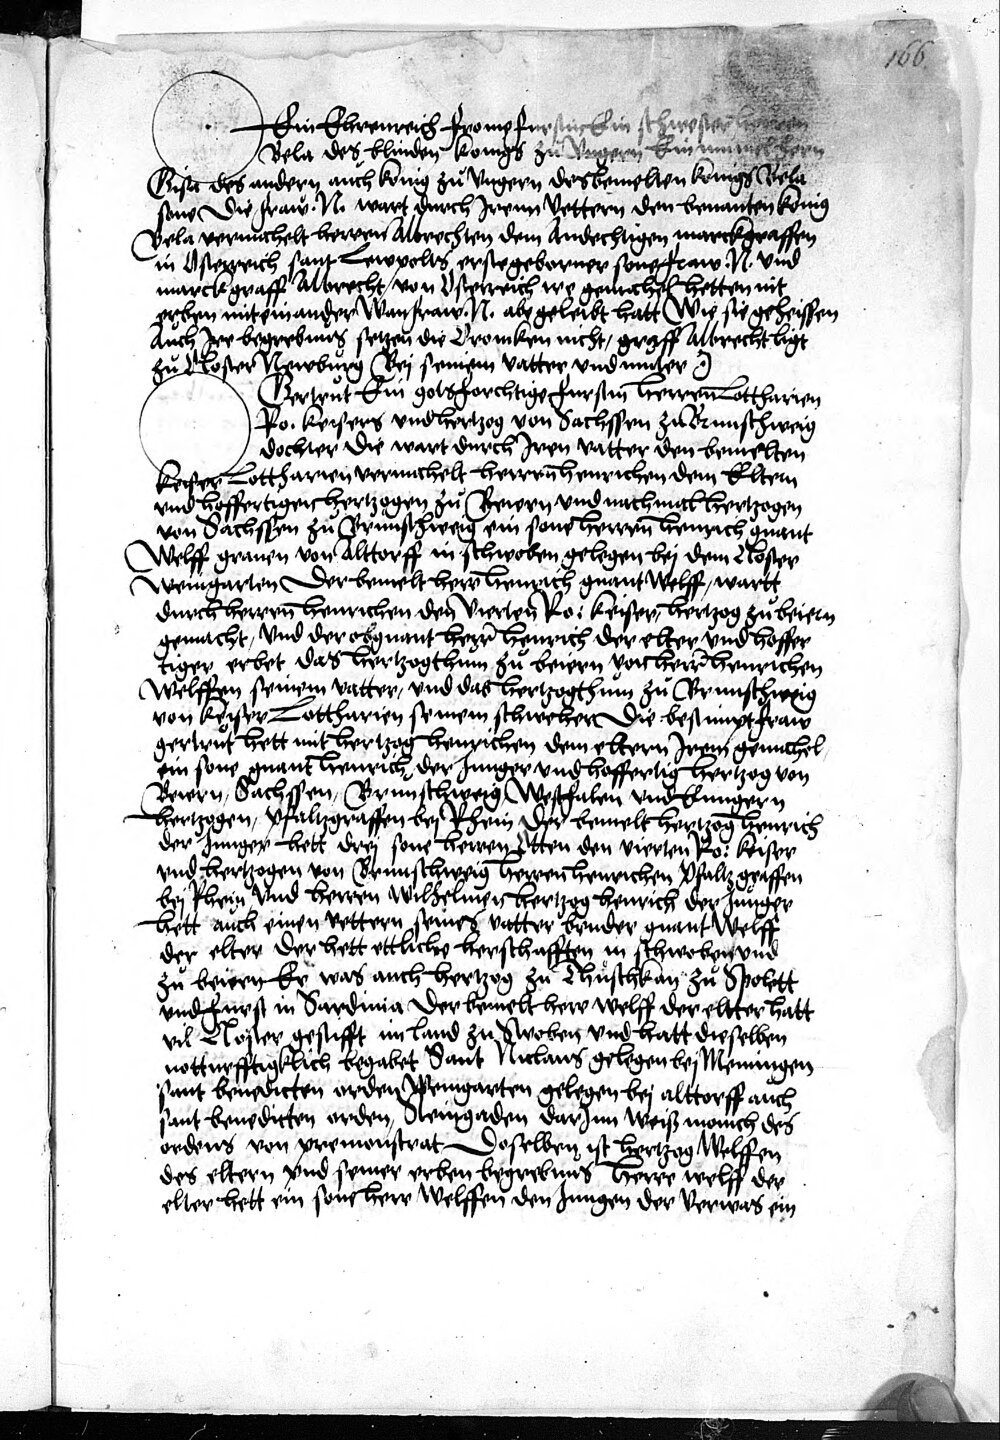 166
Ein Ehrenreich frome furstin Ein schwester herren
Bela des blinden konigs zů Vngern Ein mumel hern
Gisa des andern auch konig zů Vngern des bemelten konigs Bela
sone Die fraw. N. wart durch Jrenn Vettern den benanten konig
Bela vermachelt herren Albrechten dem Andechtigen marckgraffen
in Osterreich sant Lewpolts erstgeborner sone fraw. N. vnd
marckgraff Albrecht von Osterreich ire gemachel hetten nit
erben mit einander Wan fraw. N. abgeleibt hatt Wie sie geheissen
Auch Jre begrebnus setzen die Cronicken nicht, graff Albrecht ligt
zů Closter Newburg Bej seinem vatter vnd muter
Gertrut Ein gotsforchtige furstin herren Lottharien
Ro. keisers vnd hertzog von Sachssen zů Brunschweig
dochter Die wart durch Jren vatter den bemelten
keiser Lottharien vermachelt herren henrichen dem Eltern
vnd hoffertigen hertzogen zů Beiern vnd nachmal hertzogen
von Sachssen zů Brunschweig ein sone herren henrich gnant
Welff grauen von Alttorff in schwoben gelegen bej dem Closter
Weingarten Der bemelt herr henrich gnant Welff, wartt
durch herren henrichen den Vierten Ro: keiser hertzog zů beiern
gemacht, Vnd der obgnant herr henrich der elter vnd hoffer
tiger erbet das hertzogthum zů beiern von herr henrichen
Welffen seinem vatter, vnd das hertzogthum zů Brunschweig
von keiser Lottharien seinem schweher Die bestimpt fraw
gertrut hett mit hertzog henrichen dem eltern Jrem gemachel
ein sone gnant henrich, der Junger vnd hoffertig hertzog von
Beiern, Sachssen, Brunschweig Westfalen vnd Enngern
hertzogen, Pfaltzgraffen bej Rhein Der bemelt hertzog henrich
der Junger hett drej sone herren Otten den vierten Ro: keiser
vnd hertzogen von Brunschweig herren henrichen Pfaltzgraffen
bej Rhein Vnd herren Wilhelmen hertzog henrich der Junger
hett auch einen vettern seines vatter bruder gnant Welff
der elter Der hett ettliche herschafften in schwoben vnd
zů beiern Er was auch hertzog zů Thuschkan zů Spolett
vnd furst in Sardinia Der bemelt herr welff der eltter hatt
vil Closter gestifft im land zů Swoben vnd hatt dieselben
notturfftigklich begabet Sant Niclaus gelegen bej Memingen
sant benedicten orden Weingarten gelegen bej alttorff auch
sant benedicten orden, Steingaden dar Jnn weiß monich des
ordens von premonstrat Doselben ist hertzog Welffen
des eltern vnd seiner erben begrebnus herre welff der
elter hett ein sone herr Welffen den Jungen der Verwas ein